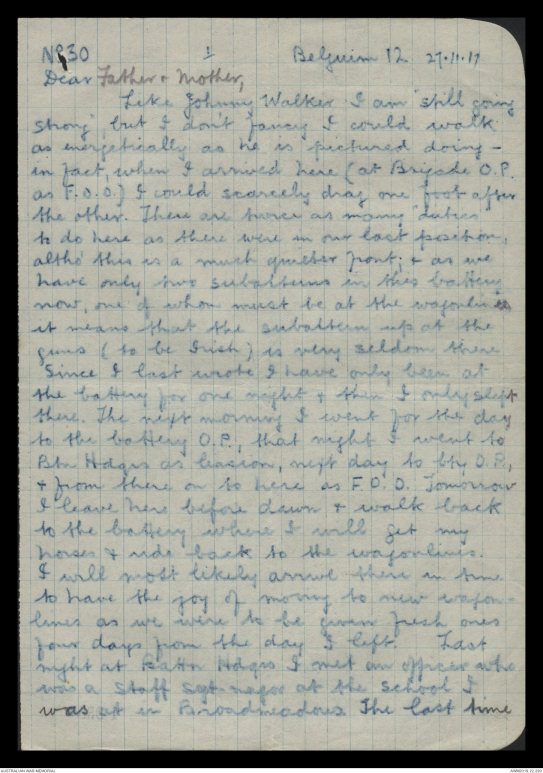 No 30 1 Belguim 12 27.11.17
Dear Father & Mother,
Like Johnny Walker I am "still going
strong", but I don't fancy I could walk
as energetically as he is pictured doing -
in fact, when I arrived here (at Brigade O.P.
as F.O.O.) I could scarcely drag one foot after
the other. There are twice as many duties
to do here as there were in our last position,
altho' this is a much quieter front; & as we
have only two subalterns in this battery
now, one of whom must be at the wagonlines
it means that the subaltern up at the
guns (to be Irish) is very seldom there
Since I last wrote I have only been at
the battery for one night & then I only slept
there. The next morning I went for the day
to the battery O.P., that night I went to
Btn Hdqrs as liasion, next day to bty O.P.,
& from there on to here as F.O.O. Tomorrow
I leave here before dawn & walk back
to the battery where I will get my
horses & ride back to the wagonlines.
I will most likely arrive there in time
to have the joy of moving to new wagon-
lines as we were to be given fresh ones
four days from the day I left. Last
night at Battn Hdqrs I met an officer who
was a Staff Sgt-major at the school I
was at in Broadmeadows. The last time
AUSTRALIAN WAR MEMORIAL